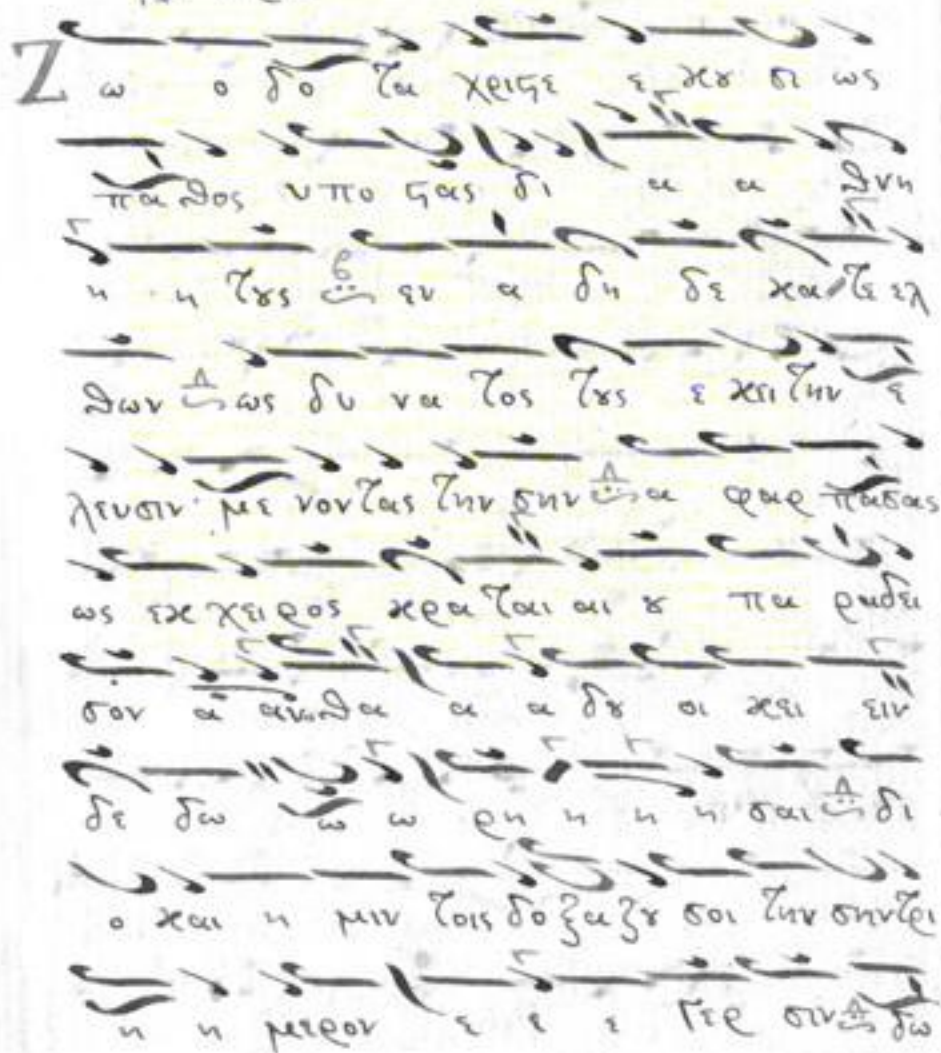 Ζω ο δο τα χριϛε ε κȣ σι ως
πα θος υπο ϛας δι α α θνη
η η τȣς εν α δη δε κα τε ελ
θων ως δυ να τος τȣς ε κει την ε
λευσιν με νοντας την σην α φαρ πασας
ως εκ χειρος κρα ται αι ȣ πα ραδει
σον α ανθα α α δȣ οι κει ειν
δε δω ω ω ρη η η η σαι δι
ο και η μιν τοις δοξαζȣ σοι την σην τρι
η η μερον ε ε ε γερ σιν δω